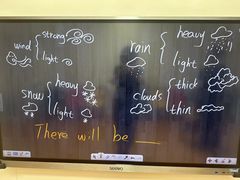 strong
wind
light
heavy
rain
light
heavy
snow
light
thick
clouds
thin
There will be __
SANAO